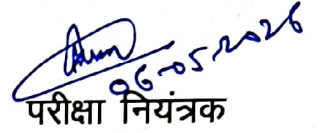 06-05-2026
परीक्षा नियंत्रक